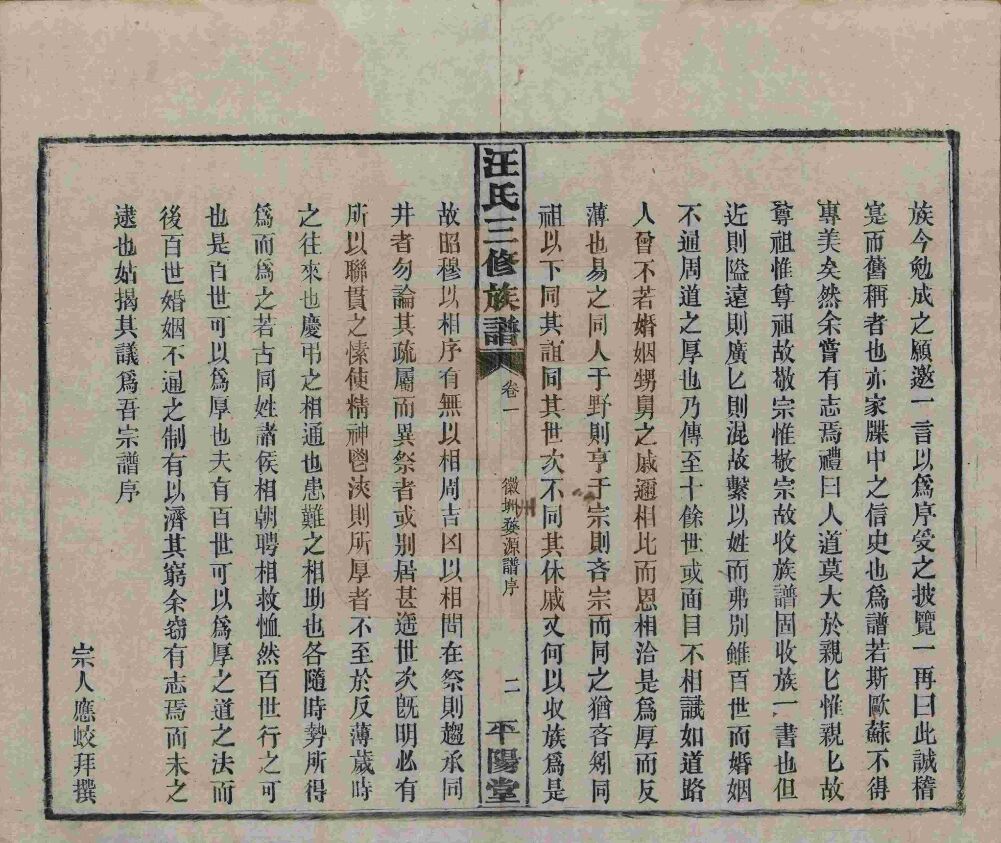 族今勉成之願邀一言以爲序受之披覽一再曰此誠稽
寔而舊稱者也亦家牒中之信史也爲譜若斯歐蘇不得
專美矣然余嘗有志焉禮曰人道莫大於親匕惟親匕故
尊祖惟尊祖故敬宗惟敬宗故收族譜固收族一書也但
近則隘遠則廣匕則混故繫以姓而弗别雖百世而婚姻
不通周道之厚也乃傳至十餘世或面目不相識如道路
人曾不若婚姻甥舅之戚邇相比而恩相洽是爲厚而反
薄也易之同人于野則亨于宗則吝宗而同之猶吝矧同
祖以下同其誼同其世次不同其休戚又何以収族爲是
汪氏三修族譜 卷一 徽州婺源譜序 二 平陽堂
故昭穆以相序有無以相周吉凶以相問在祭則趨承同
井者勿論其疏屬而異祭者或别居甚遥世次旣明必有
所以聯貫之愫使精神鬯浹則所厚者不至於反薄歲時
之往來也慶弔之相通也患難之相助也各隨時勢所得
爲而爲之若古同姓諸侯相朝聘相救恤然百世行之可
也是百世可以爲厚也夫有百世可以爲厚之道之法而
後百世婚姻不通之制有以濟其窮余窃有志焉而未之
逮也姑揭其議爲吾宗譜序
宗人應蛟拜撰